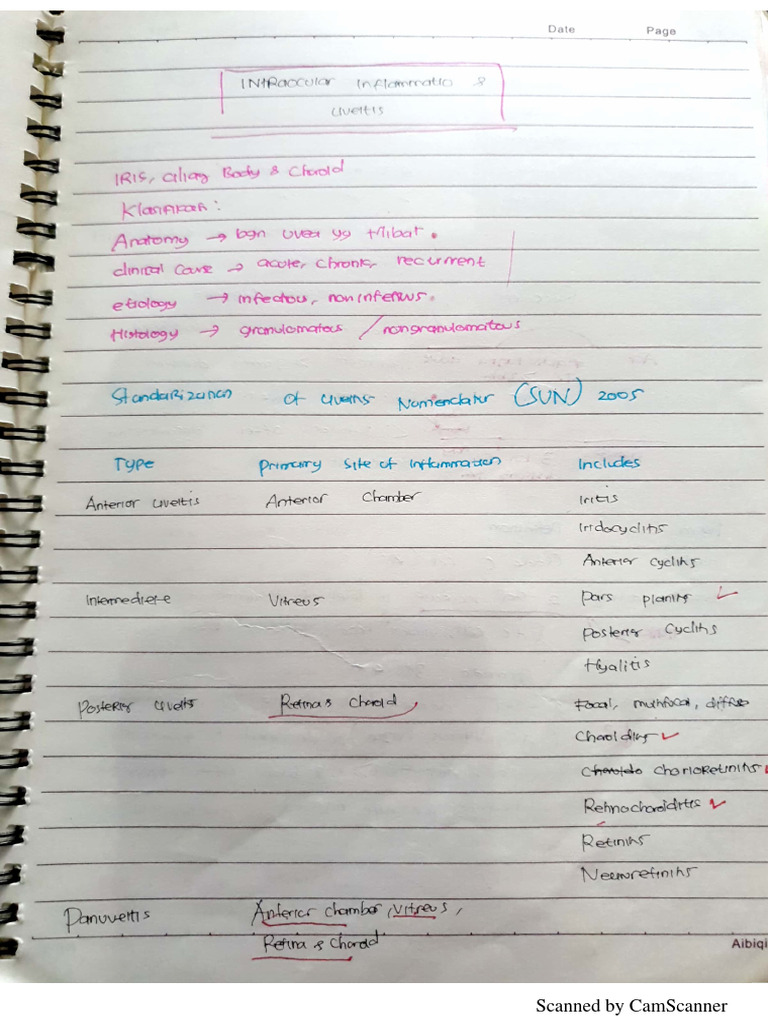 Date Page
INTRAOCULAR Inflammatio &
Uveitis
IRIS, Ciliary Body & Choroid
Klasifikasi :
Anatomy → bgn uvea yg t/libat.
clinical course → acute, chronic, recurrent
etiology → infectous, noninfectous.
Histology → granulomatous / nongranulomatous
Standarization Of Uveitis Nomenclatur (SUN) 2005
Type Primary Site of Inflammation Includes
Anterior Uveitis Anterior Chamber Iritis
Iridocyclitis
Anterior cyclitis
Intermediete Vitreus Pars planitis
Posterior Cyclitis
Hyalitis
Posterior Uveitis Retina & Choroid Focal, multifocal, diffuse
Choroiditis
Chorioretinitis
Retinochoroiditis
Retinitis
Neuroretinitis
Panuveitis Anterior chamber, Vitreus,
Retina & Choroid
Aibiqi
Scanned by CamScanner